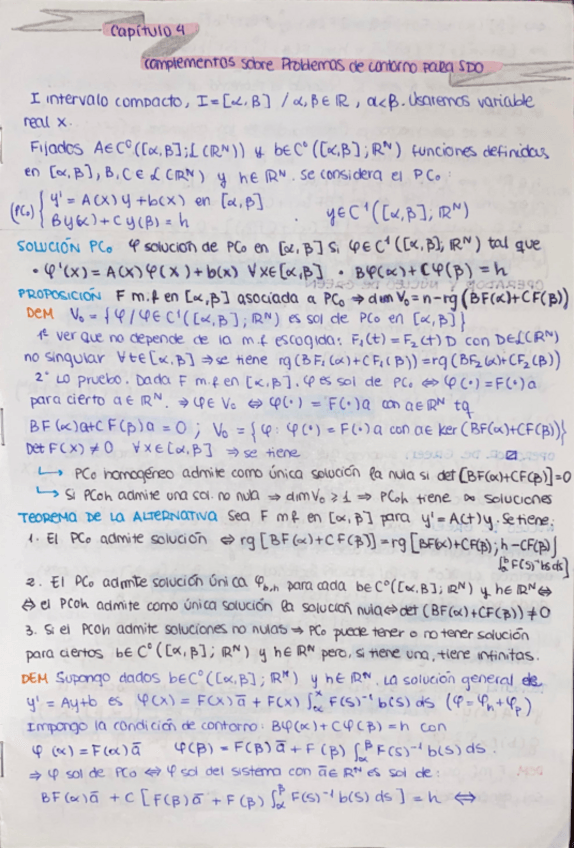 Capítulo 4
complementos sobre Problemas de contorno para SDO
I intervalo compacto, I=[α,β] / α,β∈ℝ, α<β. Usaremos variable
real x.
Fijados A∈C⁰([α,β]; L(ℝᴺ)) y b∈C⁰([α,β]; ℝᴺ) funciones definidas
en [α,β], B, C ∈ L(ℝᴺ) y h∈ℝᴺ. Se considera el PCo:
(PCo) { y' = A(x)y + b(x) en [α,β]
By(α) + Cy(β) = h y∈C¹([α,β]; ℝᴺ)
SOLUCIÓN PCo φ solucion de PCo en [α,β] si φ∈C¹([α,β]; ℝᴺ) tal que
• φ'(x) = A(x)φ(x) + b(x) ∀x∈[α,β] • Bφ(α) + Cφ(β) = h
PROPOSICIÓN F m.f en [α,β] asociada a PCo ⇒ dim V₀ = n-rg(BF(α)+CF(β))
DEM V₀ = {φ / φ∈C¹([α,β]; ℝᴺ) es sol de PCo en [α,β]}
1º ver que no depende de la m.f escogida: F₁(t) = F₂(t)D con D∈L(ℝᴺ)
no singular ∀t∈[α,β] ⇒ se tiene rg(BF₁(α)+CF₁(β)) = rg(BF₂(α)+CF₂(β))
2º Lo pruebo. Dada F m.f en [α,β]. φ es sol de PCo ⇔ φ(·) = F(·)a
para cierto a∈ℝᴺ. ⇒ φ∈V₀ ⇔ φ(·) = F(·)a con a∈ℝᴺ tq
BF(α)a+CF(β)a = 0 ; V₀ = {φ: φ(·) = F(·)a con a∈ Ker(BF(α)+CF(β))}
Det F(x) ≠ 0 ∀x∈[α,β] ⇒ se tiene
↳ PCo homogéneo admite como única solución la nula si det[BF(α)+CF(β)]=0
↳ Si PCoh admite una col. no nula ⇒ dim V₀ ≥ 1 ⇒ PCoh tiene ∞ soluciones
TEOREMA DE LA ALTERNATIVA Sea F m.f. en [α,β] para y' = A(t)y. Se tiene:
1. El PCo admite solución ⇔ rg[BF(α)+CF(β)] = rg[BF(α)+CF(β); h-CF(β)
∫αᵝ F(s)⁻¹ b(s) ds]
2. El PCo admite solución única φ_b,h para cada b∈C⁰([α,β]; ℝᴺ) y h∈ℝᴺ ⇔
⇔ el PCoh admite como única solución la solución nula ⇔ det(BF(α)+CF(β)) ≠ 0
3. Si el PCoh admite soluciones no nulas ⇒ PCo puede tener o no tener solución
para ciertos b∈C⁰([α,β]; ℝᴺ) y h∈ℝᴺ pero, si tiene una, tiene infinitas.
DEM Supongo dados b∈C⁰([α,β]; ℝᴺ) y h∈ℝᴺ. La solución general de
y' = Ay+b es φ(x) = F(x)ā + F(x)∫αˣ F(s)⁻¹ b(s) ds (φ = φₕ+φₚ)
Impongo la condición de contorno: Bφ(α)+Cφ(β) = h con
φ(α) = F(α)ā φ(β) = F(β)ā + F(β)∫αᵝ F(s)⁻¹ b(s) ds.
⇒ φ sol de PCo ⇔ φ sol del sistema con ā∈ℝᴺ es sol de:
BF(α)ā + C[F(β)ā + F(β)∫αᵝ F(s)⁻¹ b(s) ds] = h ⇔